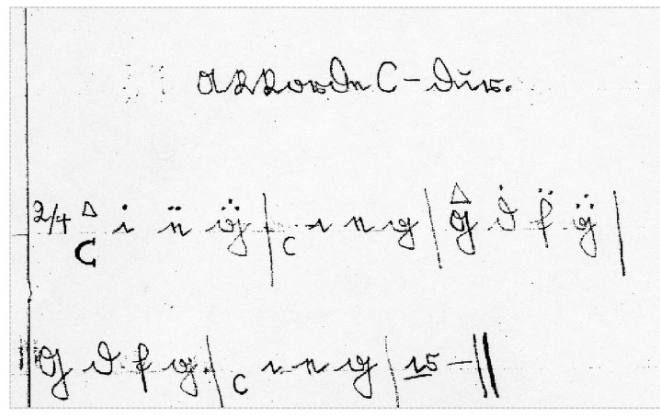 Akkorde C-Dur.
2/4 C ċ ë g⃛ | C c e g | G ḋ f̈ g⃛ |
G d f g | C c e g | - ||